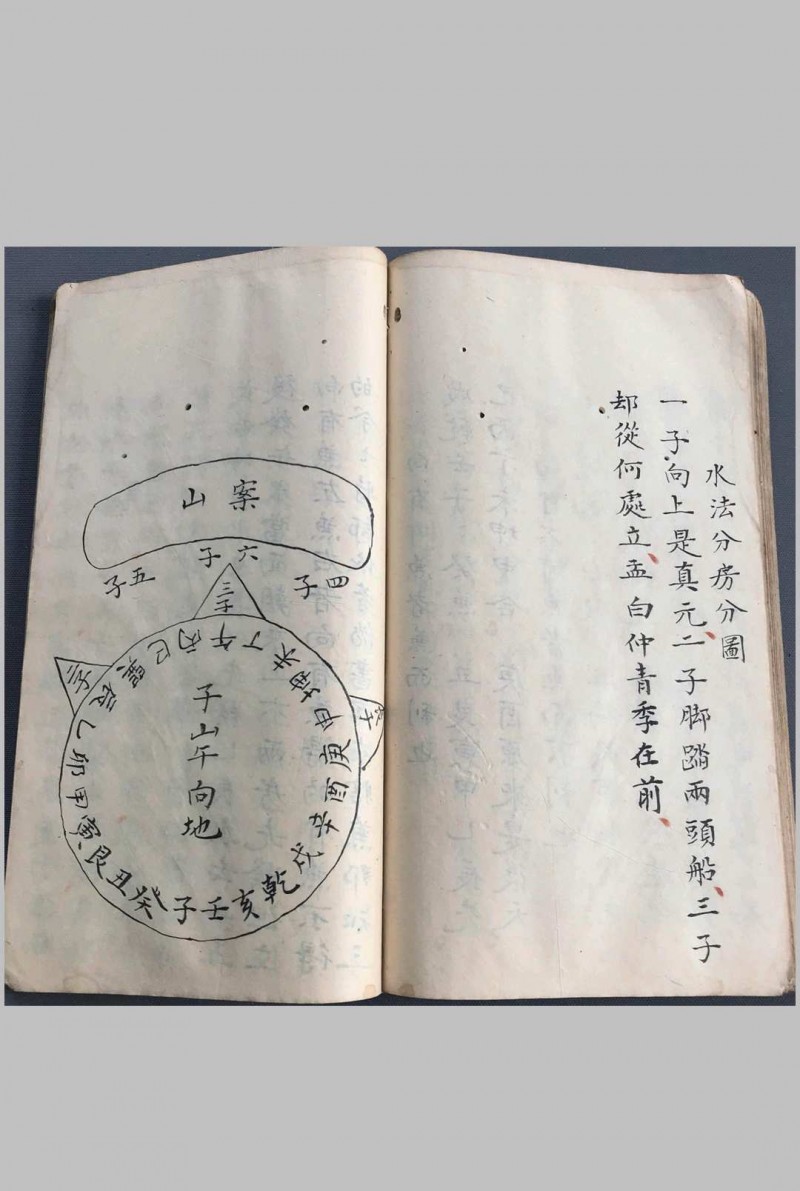 水法分房分圖
一子向上是真元二子脚踏兩頭船三子
却從何處立孟白仲青季在前
案山
六子
四子
五子
子山午向地
丁午丙巳巽
乙卯甲寅艮丑癸子壬亥乾戌辛酉庚申坤未